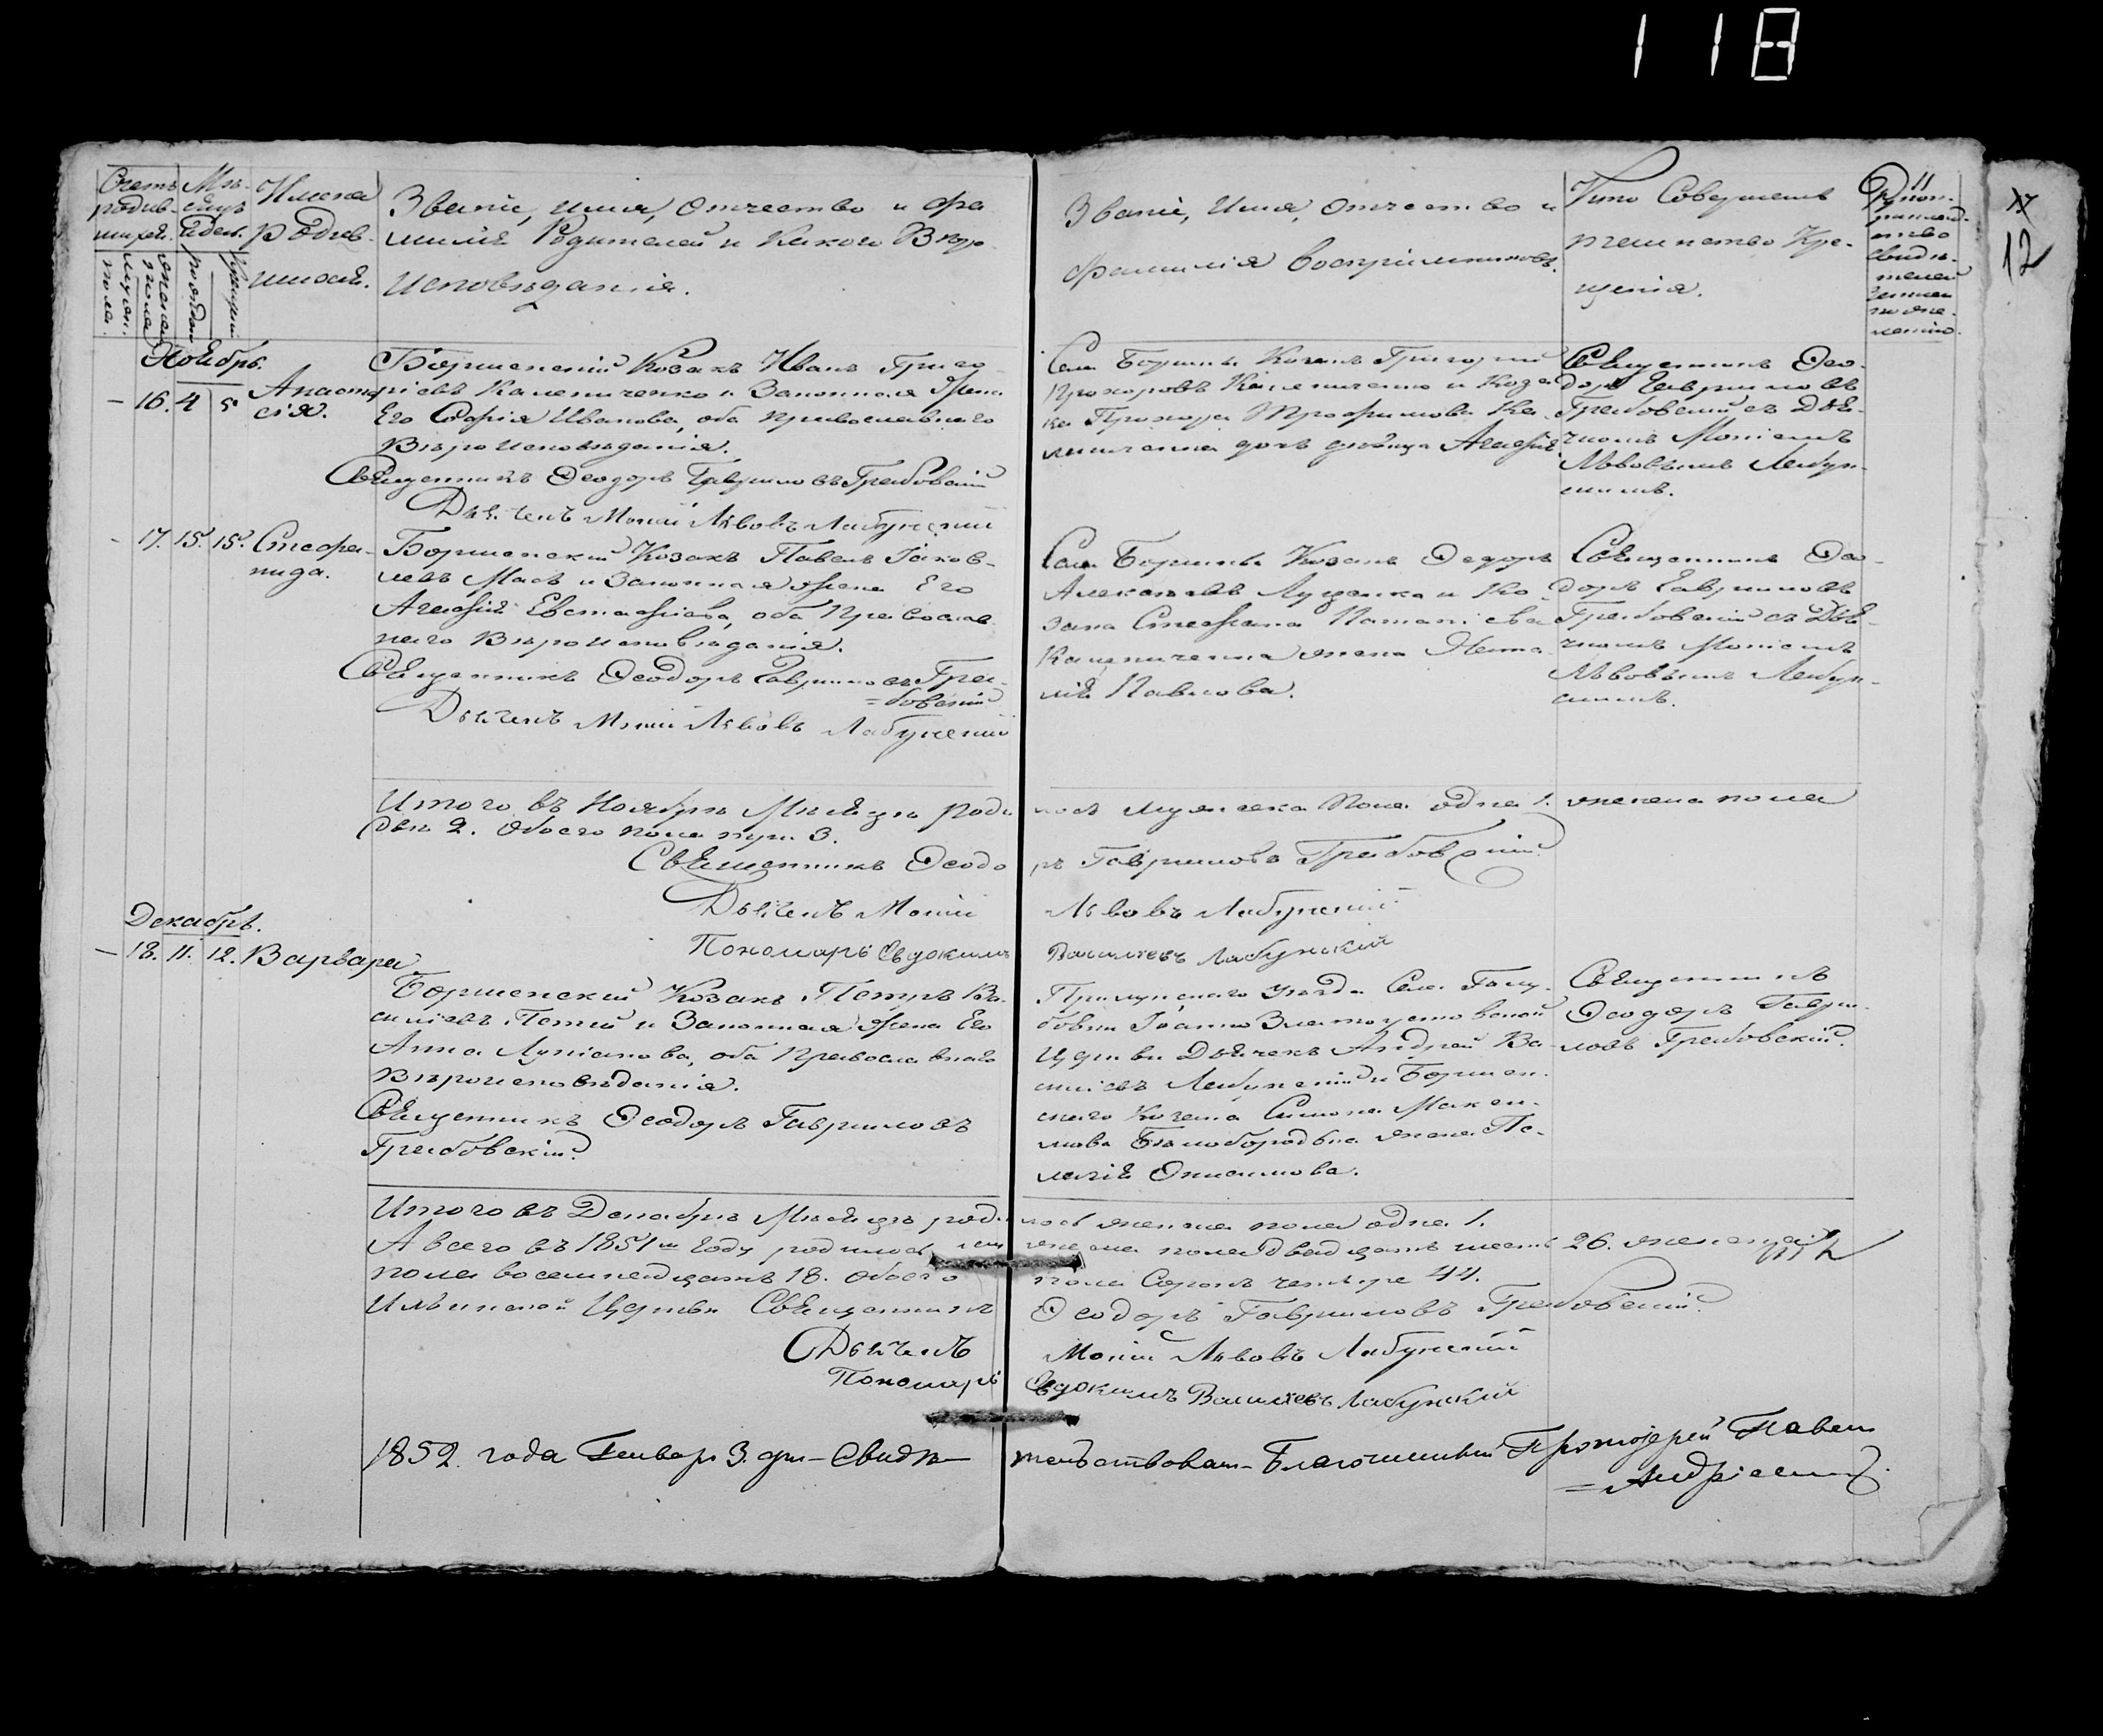 118
12
Счетъ родив-шихся.
мужеска пола.
женска пола
Мѣ-сяцъ и день.
рожденія
крещенія
Имена родив-шихся.
Званіе, имя, отчество и фа
милія Родителей и какого Вѣро
исповѣданія.
Званіе, имя, отчество и
фамилія воспріемниковъ.
Кто совершалъ
таинство Кре-
щенія.
Ноябрь.
16. 4 5 Анаста
сія.
Борщенскій Козакъ Иванъ Григо
ріевъ Калениченко и Законная Жена
Его Софія Иванова, оба православнаго
Вѣроисповѣданія.
Священникъ Ѳеодоръ Гавриловъ Грабовскій
Дьячекъ Моисій Львовъ Лабунскій
Козакъ Григорій
Прохоровъ Калениченко и Коза
ка Прохора Трофимова Ка
лениченка дочь дѣвица Агафія
Священникъ Ѳео-
доръ Гавриловъ
Грабовскій съ Дья-
чкомъ Моисіемъ
Львовымъ Лабун-
скимъ.
17. 15. 15. Стефа-
нида.
Борщенскій Козакъ Павелъ Іаков-
левъ Мась и Законная Жена Его
Агафія Евстафіева, оба Православ-
наго Вѣроисповѣданія.
Священникъ Ѳеодоръ Гавриловъ Гра-
=бовскій
Дьячекъ Моисій Львовъ Лабунскій
Козакъ Ѳедоръ
Алексѣевъ Луценко и Ко-
зака Стефана
Калениченка жена
Павлова.
Священникъ Ѳео-
доръ Гавриловъ
Грабовскій съ Дья-
чкомъ Моисіемъ
Львовымъ Лабун-
скимъ.
Итого въ Ноябрѣ Мѣсяцѣ роди
лось Мужеска Пола одна 1. женска пола
двѣ 2. Обоего пола три 3.
Священникъ Ѳеодо
ръ Гавриловъ Грабовскій
Дьячекъ Моисій
Львовъ Лабунскій
Пономарь Евдокимъ
Васильевъ Лабунскій
Декабрь.
18. 11. 12. Варвара
Борщенскій Козакъ Петръ Ва-
силіевъ и Законная Жена Его
Анна Лукіанова, оба Православнаго
Вѣроисповѣданія.
Священникъ Ѳеодоръ Гавриловъ
Грабовскій
Прилуцкаго уѣзда Села
Іоанно Златоустовской
Церкви Дьячекъ Андрей Ва-
силіевъ Лабунскій и Борщен-
скаго Козака Симона Макси-
мова Билобородька жена Пе-
лагія Онисимова.
Священникъ
Ѳеодоръ Гаври-
ловъ Грабовскій
Итого въ Декабрѣ Мѣсяцѣ роди
лось женска пола одна 1.
А всего въ 1851мъ Году родилось
пола двадцать шесть 26. женска
пола восемнадцать 18. Обоего
пола Сорокъ четыре 44.
Ильинской Церкви Священникъ
Ѳеодоръ Гавриловъ Грабовскій
Дьячекъ
Моисій Львовъ Лабунскій
Пономарь
Евдокимъ Васильевъ Лабунскій
1852. года Генваря 3. дня - Свидѣ-
тельствовалъ - Благочинный Протоіерей Павелъ